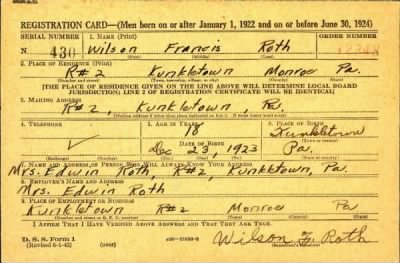 REGISTRATION CARD—(Men born on or after January 1, 1922 and on or before June 30, 1924)
SERIAL NUMBER 1. NAME (Print) ORDER NUMBER
N 430 Wilson Francis Roth
(First) (Middle) (Last)
2. PLACE OF RESIDENCE (Print)
R#2 Kunkletown Monroe Pa.
[THE PLACE OF RESIDENCE GIVEN ON THE LINE ABOVE WILL DETERMINE LOCAL BOARD
JURISDICTION; LINE 2 OF REGISTRATION CERTIFICATE WILL BE IDENTICAL]
3. MAILING ADDRESS
R#2, Kunkletown, Pa.
4. TELEPHONE 5. AGE IN YEARS 6. PLACE OF BIRTH
18 Kunkletown
DATE OF BIRTH
Dec 23, 1923 Pa.
(Exchange) (Number) (Mo.) (Day) (Yr.) (State or country)
7. NAME AND ADDRESS OF PERSON WHO WILL ALWAYS KNOW YOUR ADDRESS
Mrs. Edwin Roth, R#2, Kunkletown, Pa.
8. EMPLOYER'S NAME AND ADDRESS
Mrs. Edwin Roth
9. PLACE OF EMPLOYMENT OR BUSINESS
Kunkletown R#2 Monroe Pa
(Number and street or R. F. D. number) (Town) (County) (State)
I AFFIRM THAT I HAVE VERIFIED ABOVE ANSWERS AND THAT THEY ARE TRUE.
D. S. S. Form 1
(Revised 6-1-42) (over) Wilson F. Roth
(Registrant's signature)